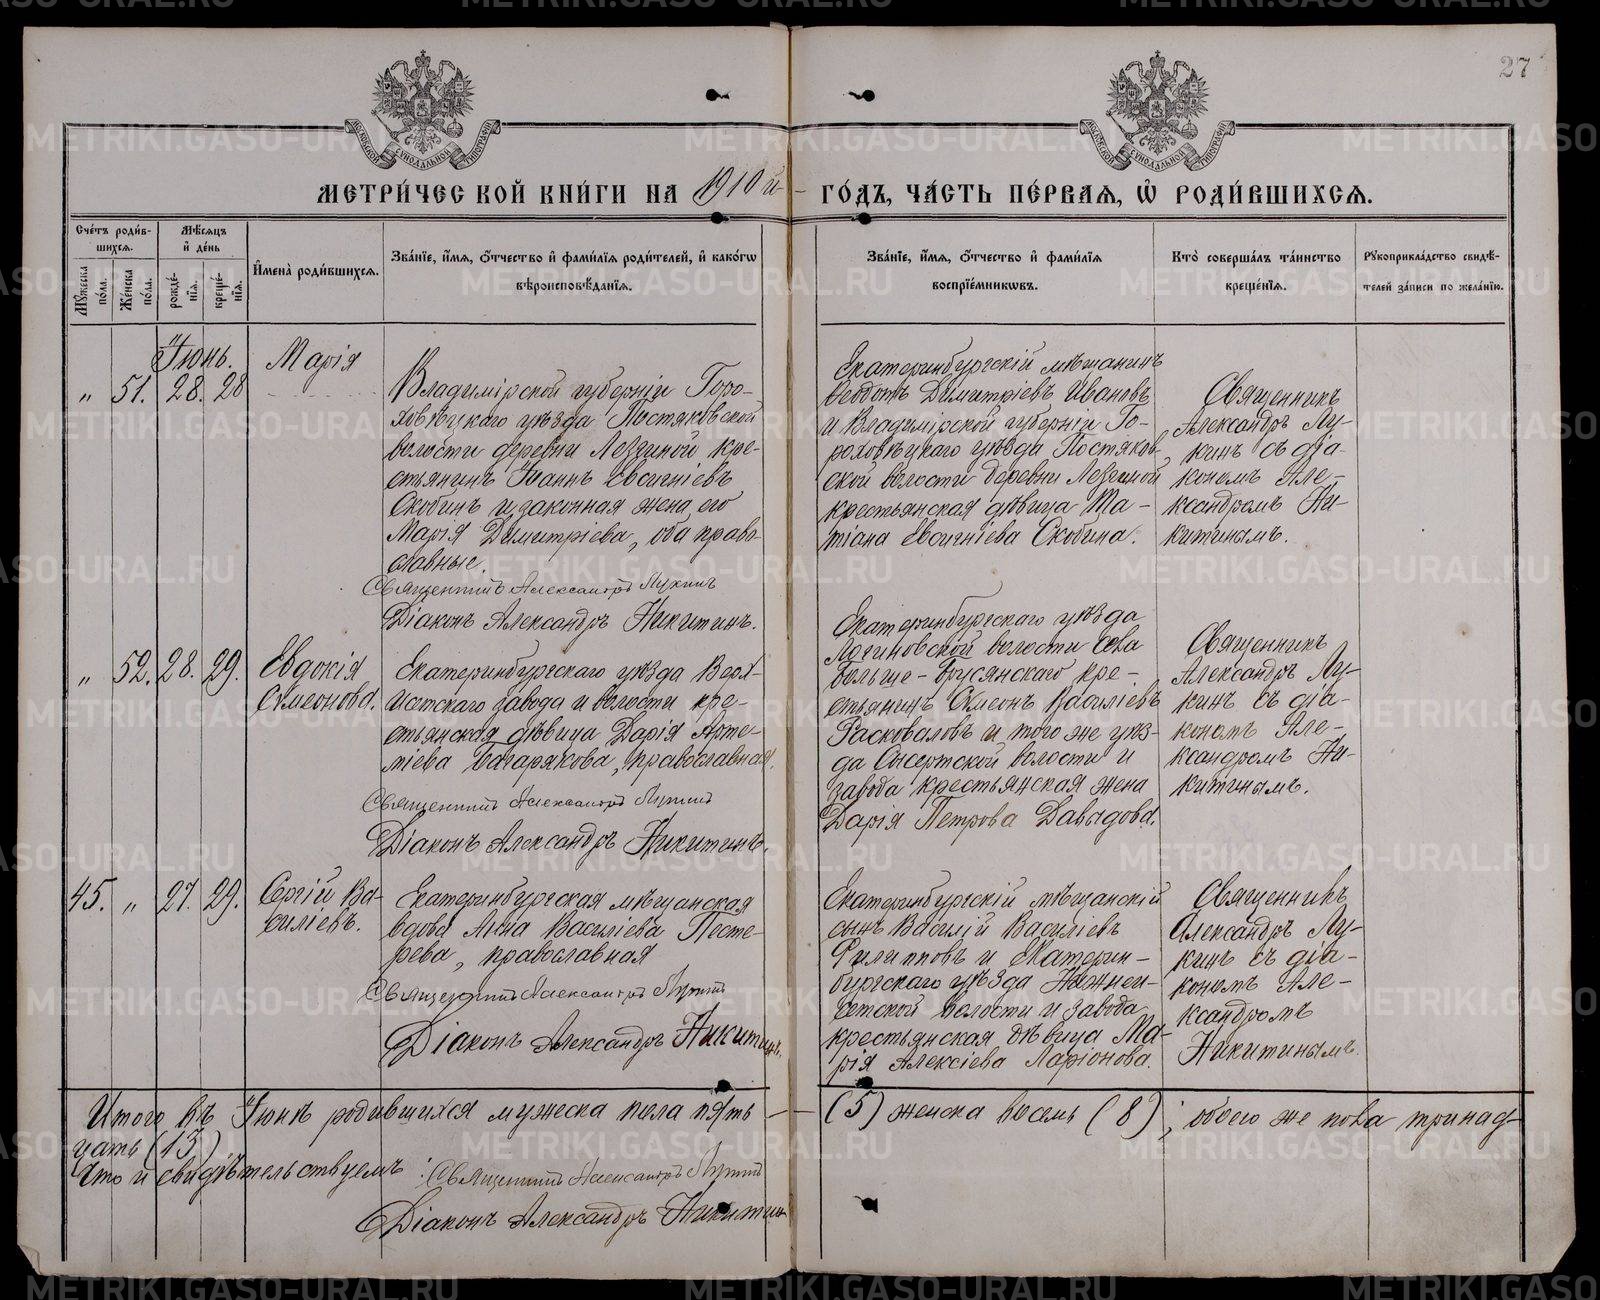 27
МЕТРИ́ЧЕСКОЙ КНИ́ГИ НА 1910й ГО́ДЪ, ЧА́СТЬ ПЕ́РВАЯ, Ѡ РОДИ́ВШИХСЯ.
Сче́тъ роди́вшихся.
Мѣ́сяцъ и҆ де́нь
Му́жеска по́ла.
Же́нска по́ла.
рожде́нїя.
креще́нїя.
И҆мена̀ роди́вшихся.
Зва́нїе, и҆́мя, ѻ҆́тчество и҆ фами́лїя роди́телей, и҆ како́гѡ
вѣроисповѣ́данїя.
Зва́нїе, и҆́мя, ѻ҆́тчество и҆ фами́лїя
воспрїе́мникѡвъ.
Кто̀ соверша́лъ та́инство
креще́нїя.
Рукоприкла́дство свидѣ́-
телей за́писи по жела́нїю.
Іюнь.
„ 51. 28. 28
Марія
Владимірской губерніи Горо-
ховецкаго уѣзда Постяковской
волости деревни Лезиной кре-
стьянинъ Іоаннъ Евсигніевъ
Скобинъ и законная жена его
Марія Димитріева, оба право-
славные.
Священникъ Александръ Лукинъ
Діаконъ Александръ Никитинъ.
Екатеринбургскій мѣщанинъ
Ѳеодотъ Димитріевъ Ивановъ
и Владимірской губерніи Го-
роховецкаго уѣзда Постяков-
ской волости деревни Лезиной
крестьянская дѣвица Та-
тіана Евсигніева Скобина.
Священникъ
Александръ Лу-
кинъ съ діа-
кономъ Але-
ксандромъ Ни-
китинымъ.
„ 52. 28. 29.
Евдокія
Симеонова.
Екатеринбургскаго уѣзда Верх-
Исетскаго завода и волости кре-
стьянская дѣвица Дарія Арте-
міева Багарякова, православная.
Священникъ Александръ Лукинъ
Діаконъ Александръ Никитинъ.
Екатеринбургскаго уѣзда
Логиновской волости села
Больше-Брусянскаго кре-
стьянинъ Симеонъ Василіевъ
Расковаловъ и того же уѣз-
да Сысертской волости и
завода крестьянская жена
Дарія Петрова Давыдова.
Священникъ
Александръ Лу-
кинъ съ діа-
кономъ Але-
ксандромъ Ни-
китинымъ.
45. „ 27. 29.
Сергій Ва-
силіевъ.
Екатеринбургская мѣщанская
вдова Анна Василіева Посте-
рева, православная
Священникъ Александръ Лукинъ
Діаконъ Александръ Никитинъ.
Екатеринбургскій мѣщанскій
сынъ Василій Василіевъ
Филипповъ и Екатерин-
бургскаго уѣзда Нижнеи-
сетской волости и завода
крестьянская дѣвица Ма-
рія Алексіева Ларіонова.
Священникъ
Александръ Лу-
кинъ съ діа-
кономъ Але-
ксандромъ
Никитинымъ.
Итого въ Іюнѣ родившихся мужеска пола пять (5) женска восемь (8); обоего же пола тринад-
цать (13).
Что и свидѣтельствуемъ: Священникъ Александръ Лукинъ
Діаконъ Александръ Никитинъ